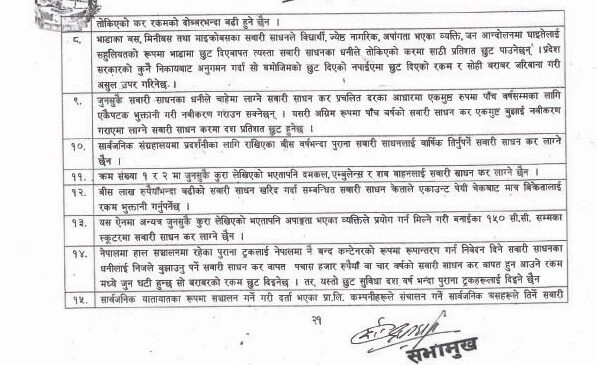 तोकिएको कर रकमको दोब्बरभन्दा बढी हुने छैन ।
८. भाडाका बस, मिनीबस तथा माइक्रोबसका सवारी साधनले विद्यार्थी, ज्येष्ठ नागरिक, अपांगता भएका व्यक्ति, जन आन्दोलनमा घाइतेलाई
सहुलियतको रूपमा भाडामा छुट दिएबापत त्यस्ता सवारी साधनका धनीले तोकिएको करमा साठी प्रतिशत छुट पाउनेछन् । प्रदेश
सरकारको कुनै निकायबाट अनुगमन गर्दा सो बमोजिमको छुट दिएको नपाईएमा छुट दिएको रकम र सोही बराबर जरिबाना गरी
असुल उपर गरिनेछ ।
९. जुनसुकै सवारी साधनका धनीले चाहेमा लाग्ने सवारी साधन कर प्रचलित दरका आधारमा एकमुष्ठ रुपमा पाँच वर्षसम्मका लागि
एकैपटक भुक्तानी गरी नवीकरण गराउन सक्नेछन् । यसरी अग्रिम रूपमा पाँच वर्षको सवारी साधन कर एकमुष्ट बुझाई नवीकरण
गराएमा लाग्ने सवारी साधन करमा दश प्रतिशत छुट हुनेछ ।
१०. सार्वजनिक संग्रहालयमा प्रदर्शनीका लागि राखिएका बीस वर्षभन्दा पुराना सवारी साधनलाई वार्षिक तिर्नुपर्ने सवारी साधन कर लाग्ने
छैन ।
११. क्रम संख्या १ र २ मा जुनसुकै कुरा लेखिएको भएतापनि दमकल, एम्बुलेन्स र शब बाहनलाई सवारी साधन कर लाग्ने छैन ।
१२. बीस लाख रुपैयाँभन्दा बढीको सवारी साधन खरिद गर्दा सम्बन्धित सवारी साधन क्रेताले एकाउण्ट पेयी चेकबाट मात्र बिक्रेतालाई
रकम भुक्तानी गर्नुपर्नेछ ।
१३. यस ऐनमा अन्यत्र जुनसुकै कुरा लेखिएको भएतापनि अपाङ्गता भएका व्यक्तिले प्रयोग गर्न मिल्ने गरी बनाईका १५० सी.सी. सम्मका
स्कूटरमा सवारी साधन कर लाग्ने छैन ।
१४. नेपालमा हाल सञ्चालनमा रहेका पुराना ट्रकलाई नेपालमा नै बन्द कन्टेनरको रूपमा रूपान्तरण गर्न निवेदन दिने सवारी साधनका
धनीलाई निजले बुझाउनु पर्ने सवारी साधन कर वापत पचास हजार रुपैयाँ वा चार वर्षको सवारी साधन कर वापत हुन आउने रकम
मध्ये जुन घटी हुन्छ सो बराबरको रकम छुट दिइनेछ । तर, यस्तो छुट सुविधा दश वर्ष भन्दा पुराना ट्रकहरूलाई दिइने छैन
१५. सार्वजनिक यातायातका रूपमा सञ्चालन गर्ने गरी दर्ता भएका प्रा.लि. कम्पनीहरूले संचालन गर्ने सार्वजनिक बसहरूले तिर्ने सवारी
२१
सभामुख